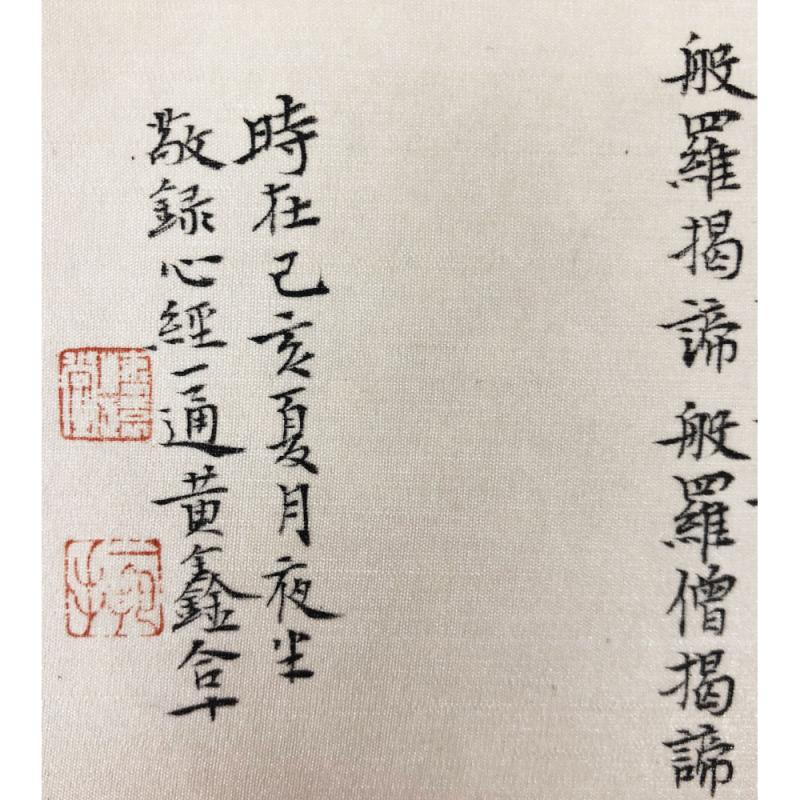 般羅揭諦般羅僧揭諦
時在己亥夏月夜半
敬録心經一通黄鑫合十